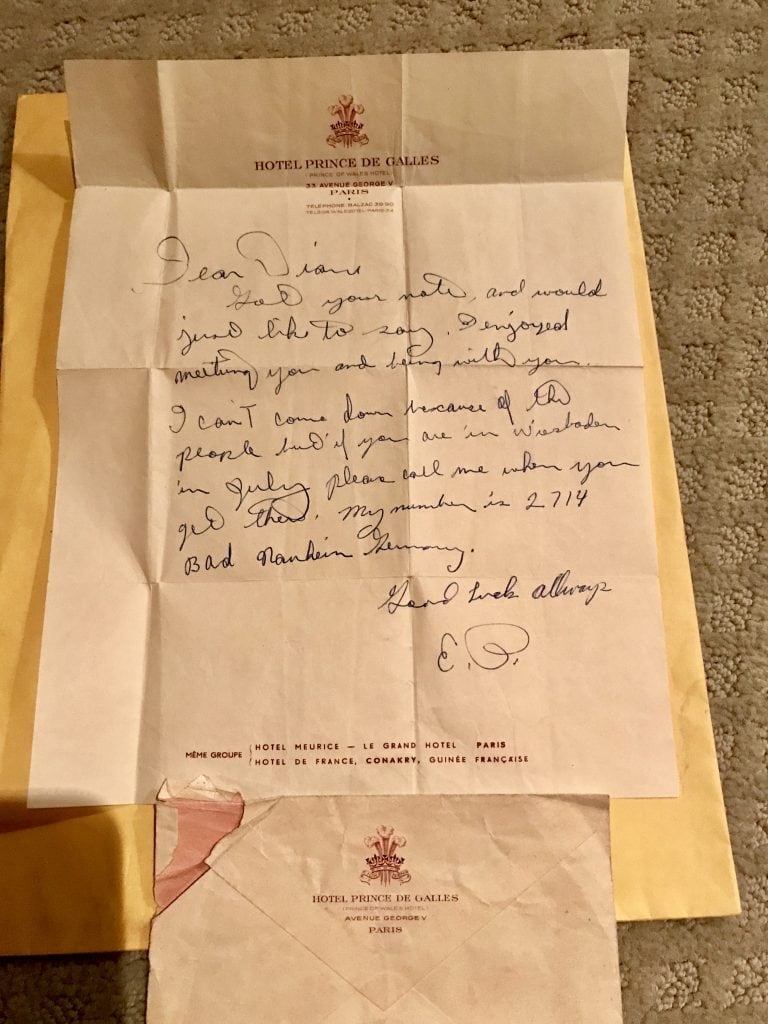 HOTEL PRINCE DE GALLES
(PRINCE OF WALES HOTEL)
33 AVENUE GEORGE V
PARIS
TÉLÉPHONE BALZAC 39-90
Dear Diane
Got your note, and would
just like to say, I enjoyed
meeting you and being with you.
I can't come down because of the
people but if you are in Wiesbaden
in July please call me when you
get there. My number is 2714
Bad Nanheim Germany.
Good Luck allways
E.P.
MÊME GROUPE
HOTEL MEURICE — LE GRAND HOTEL PARIS
HOTEL DE FRANCE, CONAKRY, GUINÉE FRANÇAISE
HOTEL PRINCE DE GALLES
(PRINCE OF WALES HOTEL)
AVENUE GEORGE V
PARIS